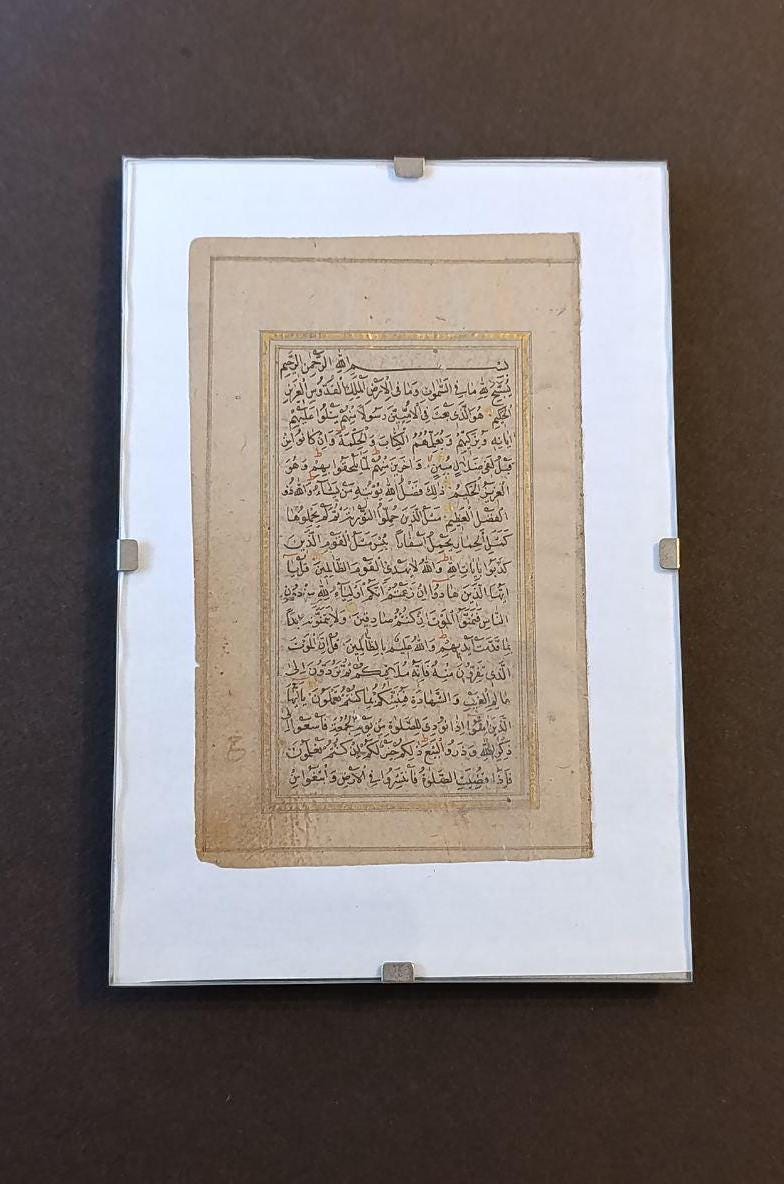 بسم الله الرحمن الرحيم
يُسَبِّحُ لله ما في السَّموات وما فى الارض الملك القدّوس العزيز
الحكيم هو الّذى بعث فى الاميّين رسولا منهم يتلوا عليهم
اياته ويزكيهم ويعلمهم الكتاب والحكمة وان كانوا من
قبل لفى ضلال مبين واخرين منهم لمّا يلحقوا بهم وهو
العزيز الحكيم ذلك فضل الله يؤتيه من يشاء والله ذو
الفضل العظيم مثل الّذين حمّلوا التّورية ثم لم يحملوها
كمثل الحمار يحمل اسفاراً بئس مثل القوم الّذين
كذّبوا بايات الله والله لا يهدى القوم الظالمين قل يا
ايّها الّذين هادوا ان زعمتم انّكم اولياء لله من دون
النّاس فتمنّوا الموت ان كنتم صادقين ولا يتمنّونه ابداً
بما قدّمت ايديهم والله عليم بالظّالمين قل انّ الموت
الّذى تفرّون منه فانّه ملاقيكم ثمّ تردّون الى
عالم الغيب والشّهادة فينبّئكم بما كنتم تعملون يا ايّها
الّذين امنوا اذا نودى للصّلوة من يوم الجمعة فاسعوا الى
ذكر الله وذروا البيع ذلكم خير لكم ان كنتم تعلمون
فاذا قضيت الصّلوة فانتشروا في الارض وابتغوا من